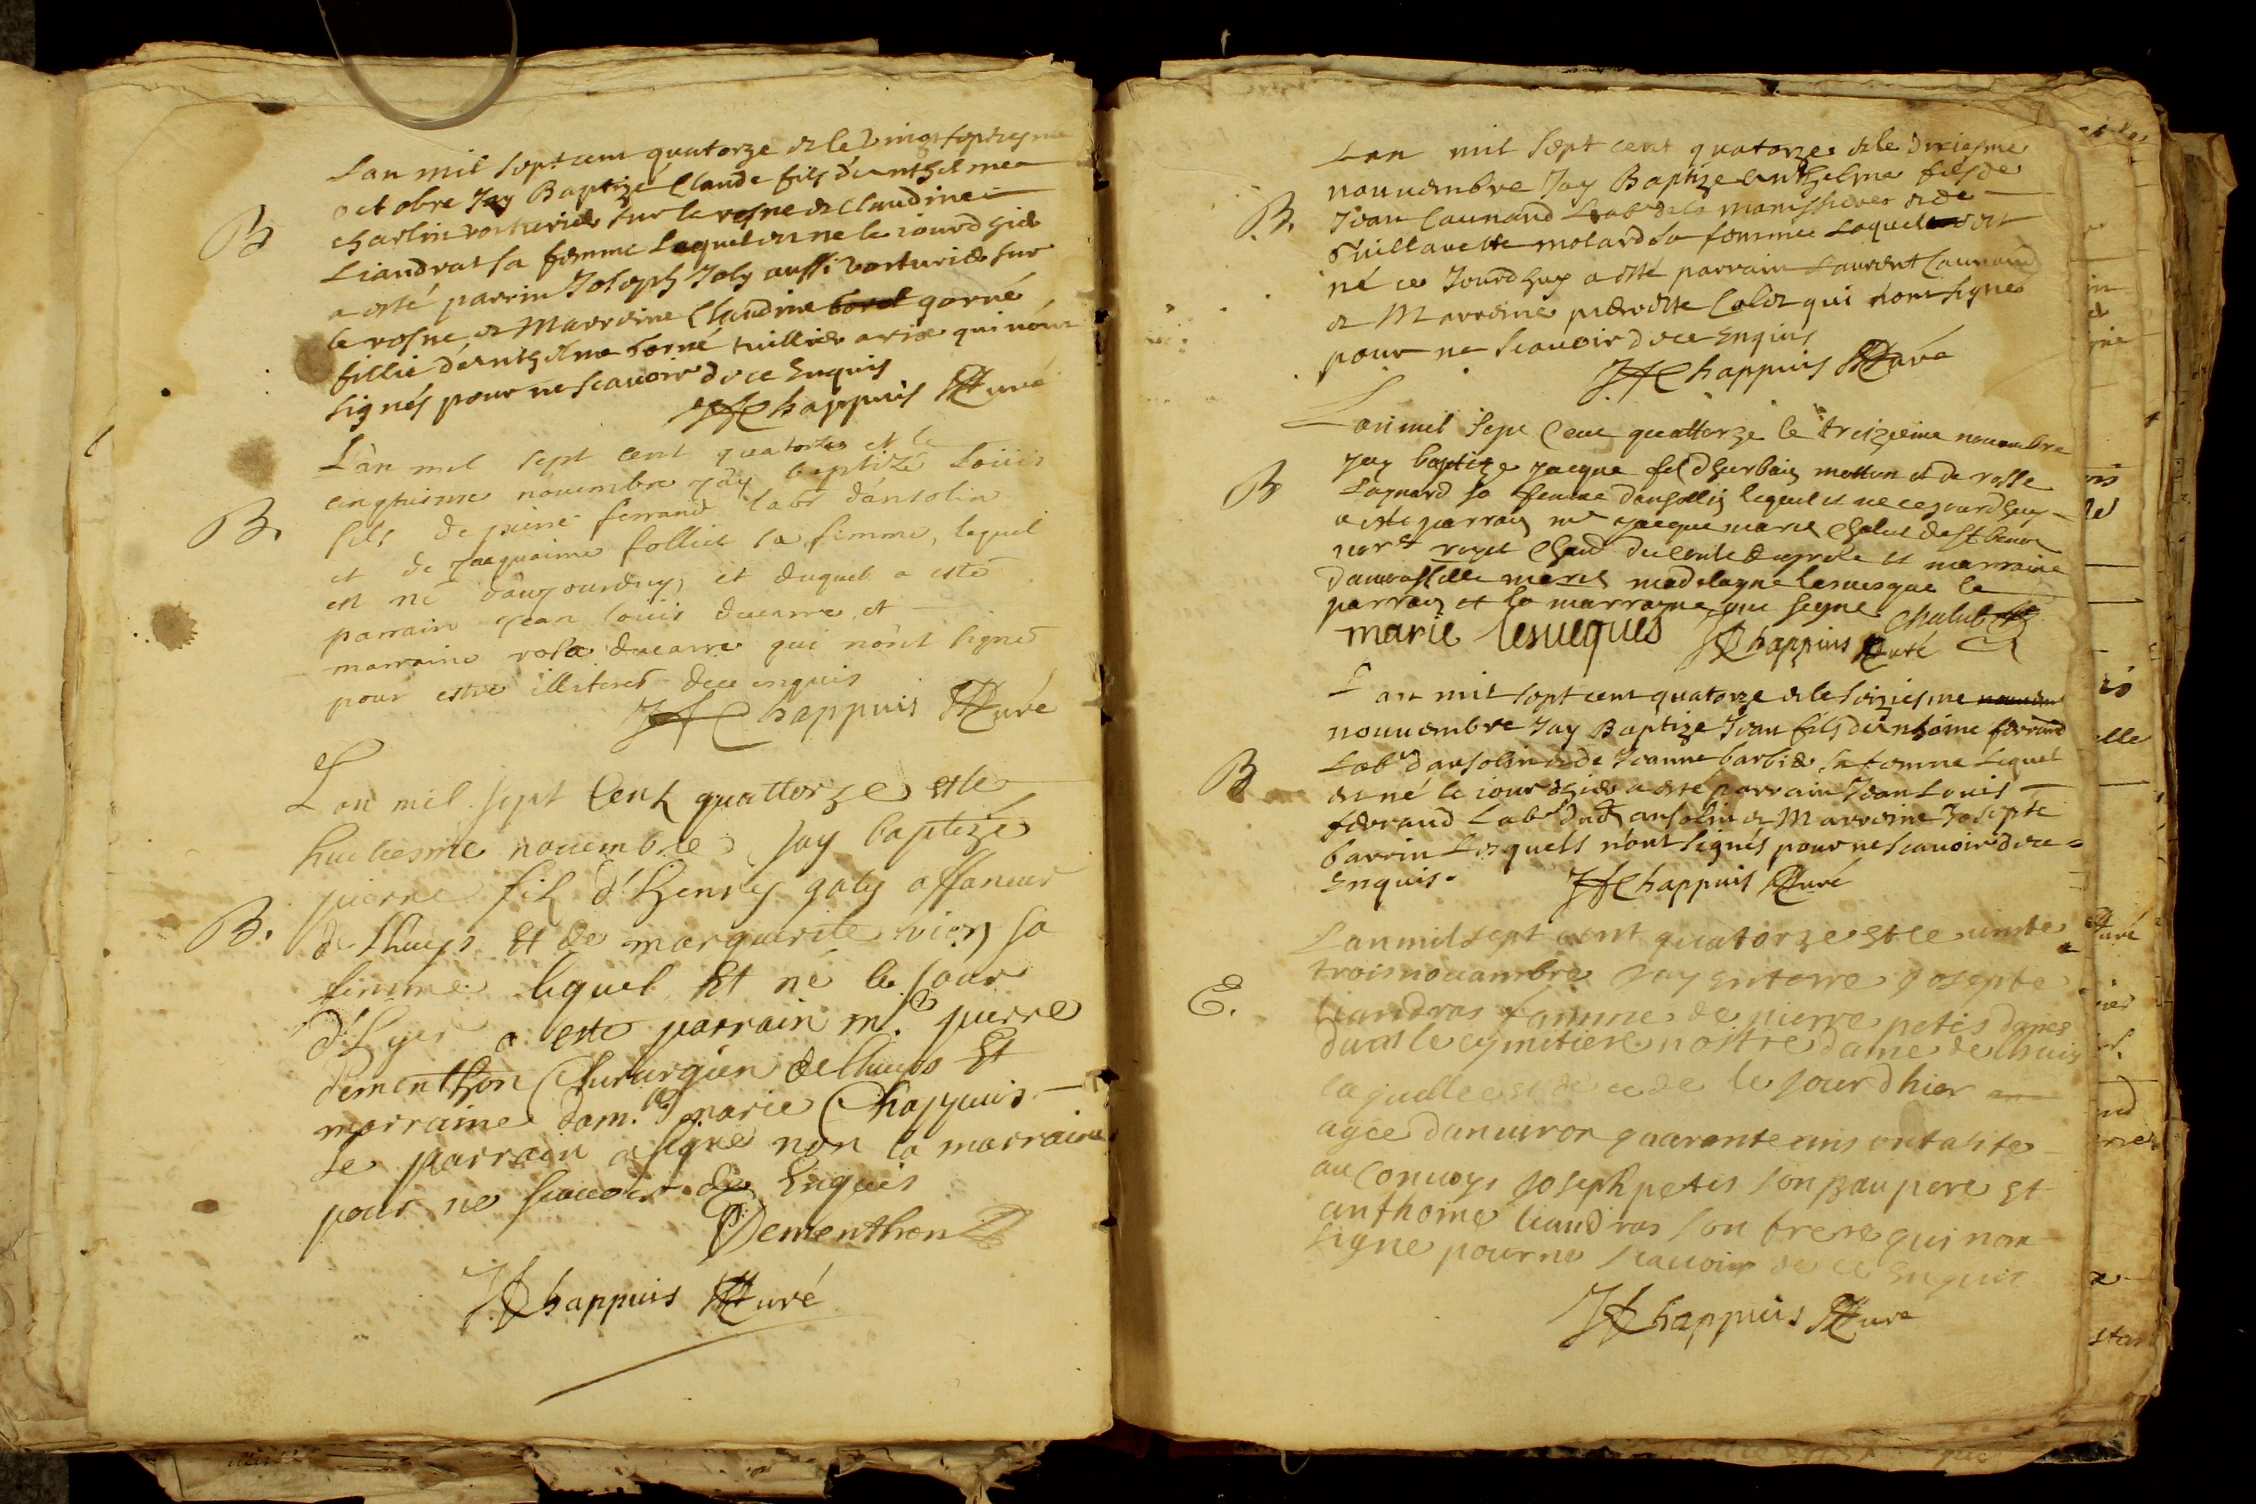 Lan mil sept cent quatorze et le vingt septiesme
octobre Jay Baptizé Claude fils d'anthelme
B
Charlin voiturier sur le rosne et Claudine
Liandrat sa femme lequel est ne le iourd hier
a esté parrin Joseph Joly aussi voiturier sur
le rosne et Marreine Claudine borel gorné
fillie d'anthelme borné tuillier qui n'ont
signés pour ne scavoir de ce Enquis
JChappuis Curé
L'an mil sept cent quatorze et le
cinqtuisme novembre J'ay baptizé Louis
B.
fils de pierre ferrand labr d'ansolin
et de Jacquaime folliet sa femme, lequel
est né d'aujourduy, et duquel a esté
parrain Jean louis ducarre et
marraine rose ducarre qui n'ont signer
pour estre illiteres de ce enquis
JChappuis Curé
Lan mil sept Cent quattorze et le
huictiesme novembre Jay baptizé
pierre fils d'henry galy affaneur
B.
de Lhuys Et de marguerite vion sa
femme lequel Et né le Jour
d'hyer a esté parrain mr pierre
dementhon Chirurgien de Lhuys Et
marraine dam.lle marie Chappuis
Le parrain a signé non la marraine
pour ne scavoir de Enquis
Dementhon
JChappuis Curé
Lan mil sept cent quatorze et le dixiesme
nouvembre Jay Baptize anthelme fils de
B.
Jean Caunand Labr de et de
Guillauette molard sa femme Lequel est
né ce Jourdhuy a esté parrain Laurent Caunand
et Marreine pierrette Colet qui n'ont signé
pour ne scavoir de ce Enquis
JChappuis Curé
Lan mil sept Cent quattorze le treizieme novembre
B
jay baptize jacque fil d'hurbain mottin et de rosse
sa femme dansollin lequel et ne ce jourdhuy
a esté parrain mr jacque marie Chalut de st benoi
et marraine
damoiselle marie madelayne lesuesque le
parrain et la marrayne ont segné Chalut
marie lesueques JChappuis Curé
Lan mil sept cent quatorze et le seiziesme
nouvembre Jay Baptize Jean fils d'anthoine ferrand
B
Labr d'ansolin et de Jeanne barbier sa femme Lequel
est né le iour d'hier a esté parrain Jean Louis
ferrand Labr dudt ansolin et Marreine Josepte
barrin Lesquels n'ont signés pour ne scavoir de ce
Enquis. JChappuis Curé
Lan mil sept cent quatorze et le vinte
trois novambre Jay Enterre Josepte
E.
liandras famme de pierre petis
dans le cymitiere nostre dame de lhuis
laquelle est décédé le jour d hier
agée danviron quarante ans ont asité
au Convoys Joseph petis son baupere Et
anthoine liandras son frere qui non
signe pour ne scavoir de ce Enquis
JChappuis Cure